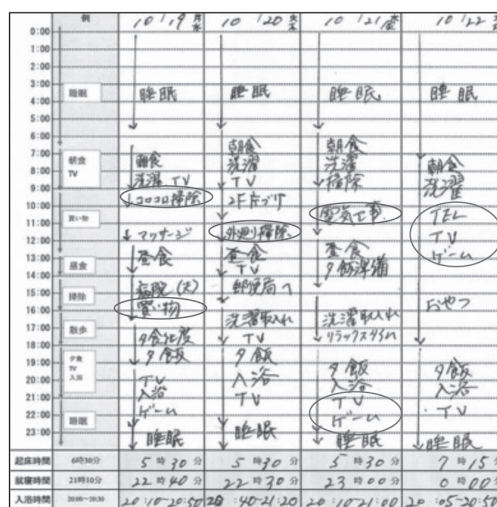 例 10/19 月 10/20 火 10/21 水 10/22 木
0:00
1:00
2:00
3:00
4:00 睡眠 睡眠 睡眠 睡眠 睡眠
5:00
6:00
7:00 朝食 朝食
8:00 朝食 TV 朝食 洗濯 洗濯 朝食
9:00 洗濯 TV TV 掃除 洗濯
10:00 コロコロ掃除 2F片づけ
11:00 買い物 電気工事 TEL
12:00 マッサージ 外廻り掃除 TV
13:00 昼食 昼食 昼食 ゲーム
14:00 昼食 TV 夕飯準備
15:00 病院(犬) 郵便局へ
16:00 掃除 買い物 おやつ
17:00 洗濯取入れ 洗濯取入れ
18:00 散歩 夕食仕度 TV リラックスタイム
19:00 夕食 夕飯 夕飯
20:00 TV 入浴 夕飯 夕飯
21:00 TV 入浴 入浴 入浴
22:00 入浴 TV TV TV
23:00 睡眠 ゲーム ゲーム
睡眠 睡眠 睡眠 睡眠
起床時間 6時30分 5時30分 5時30分 5時30分 7時15分
就寝時間 21時10分 22時40分 22時30分 23時00分 0時00分
入浴時間 20:00~20:30 20:10-20:50 20:40-21:20 20:10-21:00 20:05-20:50